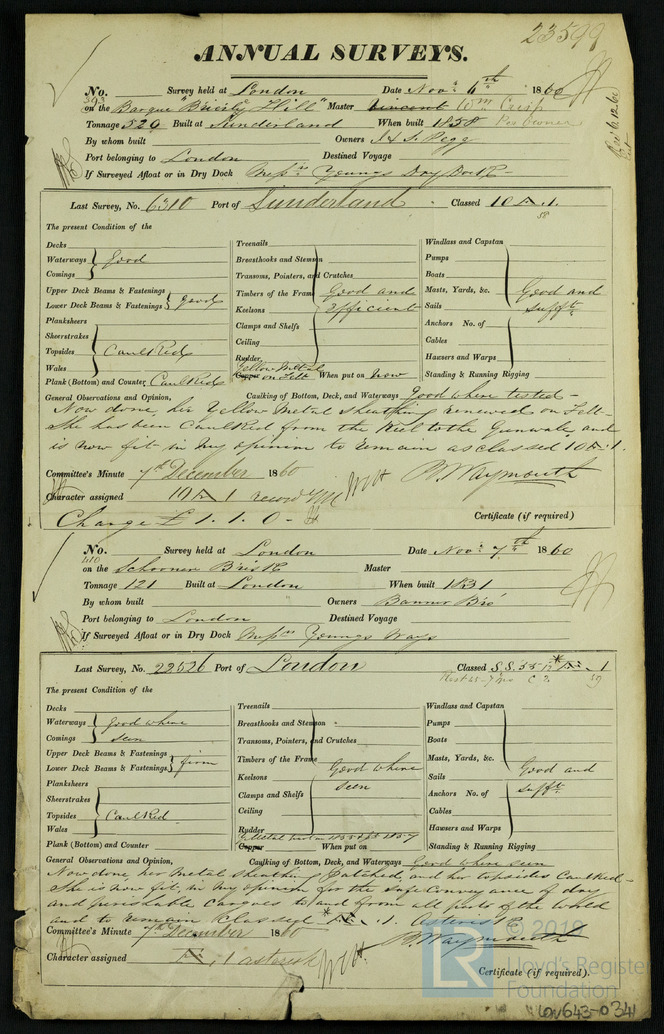 23599
ANNUAL SURVEYS.
No. 593 Survey held at London Date Nov.r 6th 1860
on the Barque "Brierly Hill" Master Vincent Wm Crisp
Tonnage 520 Built at Sunderland When built 1858 Per Owner
By whom built Owners J & S. Pegg
Port belonging to London Destined Voyage
If Surveyed Afloat or in Dry Dock Mess.rs Youngs Dry Dock
Last Survey, No. 6310 Port of Sunderland Classed 10 A. 1.
58
The present Condition of the
Decks
Waterways Good
Comings
Upper Deck Beams & Fastenings
Lower Deck Beams & Fastenings good
Planksheers
Sheerstrakes
Topsides Caulked
Wales
Plank (Bottom) and Counter Caulked
Treenails
Breasthooks and Stemson
Transoms, Pointers, and Crutches
Timbers of the Frame Good and
Keelsons Efficient
Clamps and Shelfs
Ceiling
Rudder
Yellow Metal
Copper on Felt When put on now
Windlass and Capstan
Pumps
Boats
Masts, Yards, &c. Good and
Sails Sufft.
Anchors No. of
Cables
Hawsers and Warps
Standing & Running Rigging
General Observations and Opinion, Caulking of Bottom, Deck, and Waterways Good where tested -
Now done, her Yellow Metal Sheathing renewed on Felt
She has been Caulked from the Keel to the Gunwale and
is now fit in my opinion to remain as classed 10 A. 1.
Committee's Minute 7th December 1860 W. Waymouth
Character assigned 10 A 1
Charge £ 1. 1. 0 - Certificate (if required)
No. 610 Survey held at London Date Nov.r 7th 1860
on the Schooner Brisk Master
Tonnage 121 Built at London When built 1831
By whom built Owners Banner Bro.s
Port belonging to London Destined Voyage
If Surveyed Afloat or in Dry Dock Mess.rs Youngs Ways
Last Survey, No. 22526 Port of London Classed S.S. 55 * Æ. 1
59
The present Condition of the
Decks
Waterways Good where
Comings seen
Upper Deck Beams & Fastenings
Lower Deck Beams & Fastenings firm
Planksheers
Sheerstrakes
Topsides Caulked
Wales
Plank (Bottom) and Counter
Treenails
Breasthooks and Stemson
Transoms, Pointers, and Crutches
Timbers of the Frame Good where
Keelsons seen
Clamps and Shelfs
Ceiling
Rudder
Copper When put on
Windlass and Capstan
Pumps
Boats
Masts, Yards, &c.
Sails Good and
Anchors No. of Sufft.
Cables
Hawsers and Warps
Standing & Running Rigging
General Observations and Opinion, Caulking of Bottom, Deck, and Waterways Good where seen
Now done, her Metal Sheathing Patched, and her topsides Caulked -
She is now fit, in my opinion for the safe Conveyance of dry
and perishable Cargoes to and from all parts of the World
and to remain Classed * Æ. 1. Asterisk
Committee's Minute 7th December 1860 W. Waymouth
Character assigned Æ. 1 asterisk
Certificate (if required).
© 2019
LR
Lloyd's Register
Foundation
LON643-0341